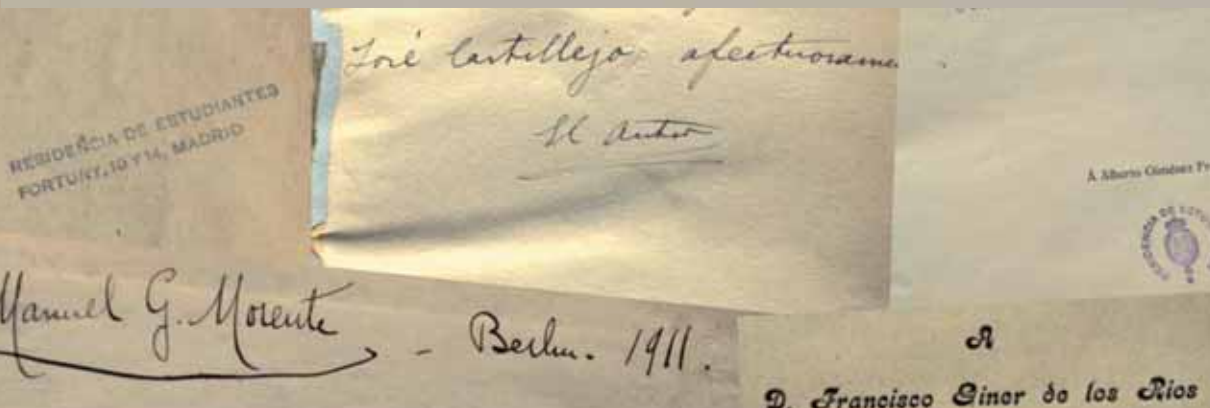 RESIDENCIA DE ESTUDIANTES
FORTUNY, 10 Y 14, MADRID
José Castillejo afectuosame
El autor
Á Alberto Giménez Fr
RESIDENCIA DE ESTU
Manuel G. Morente - Berlin. 1911.
A
D. Francisco Giner de los Rios